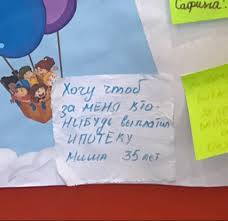 Сафина".
Хочу чтоб
за меня кто-
нибудь выплатил
ипотеку
Миша 35 лет